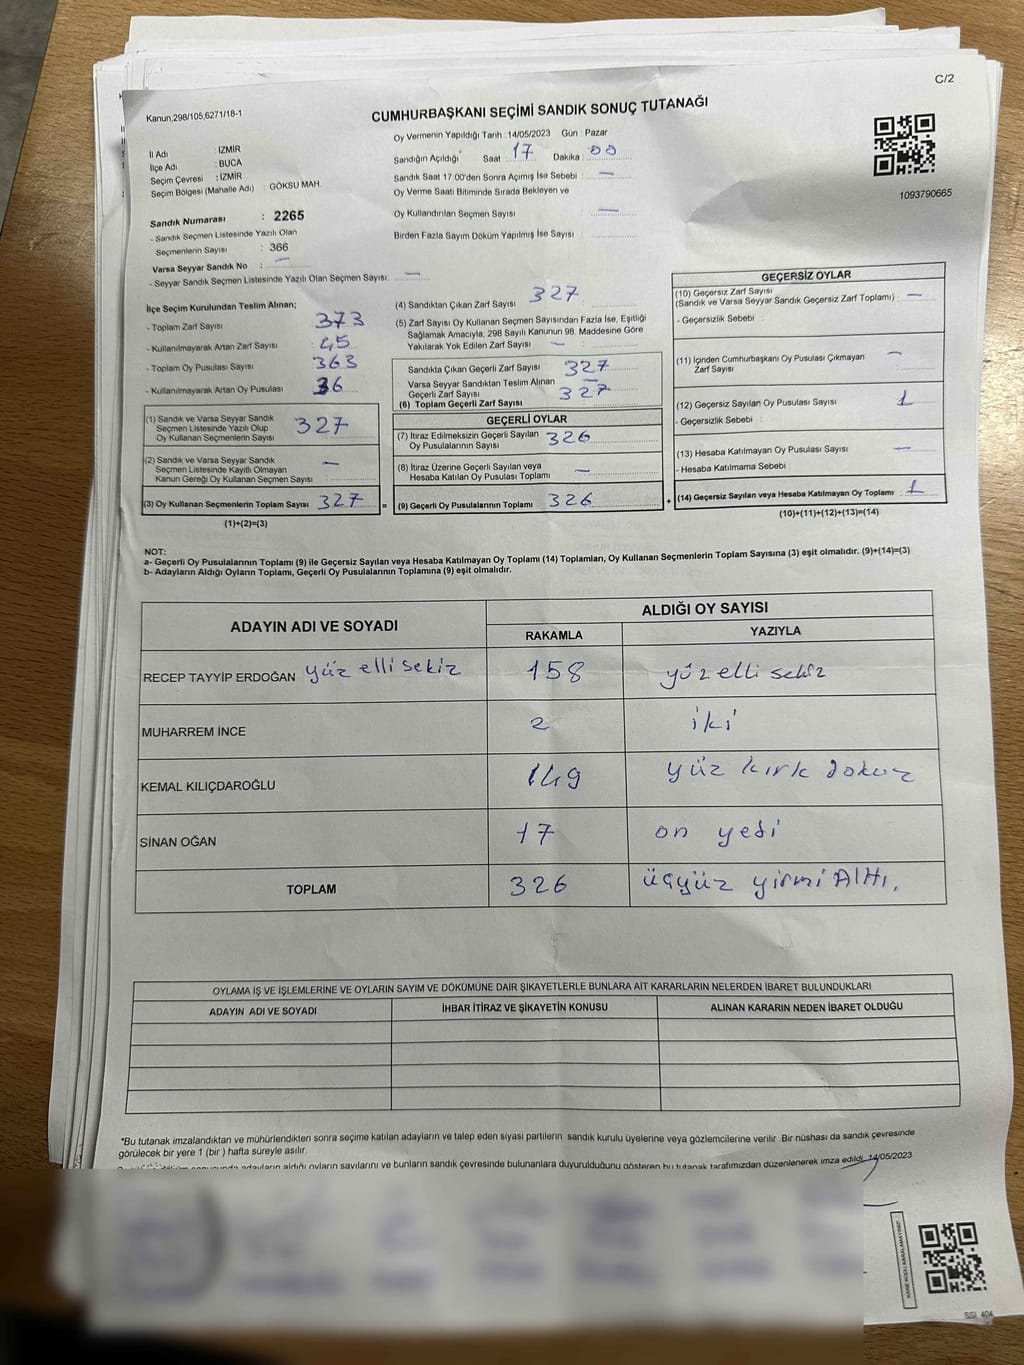 C/2
Kanun,298/105,6271/18-1
CUMHURBAŞKANI SEÇİMİ SANDIK SONUÇ TUTANAĞI
1093790665
İl Adı : İZMİR
İlçe Adı : BUCA
Seçim Çevresi : İZMİR
Seçim Bölgesi (Mahalle Adı) : GÖKSU MAH.
Sandık Numarası : 2265
- Sandık Seçmen Listesinde Yazılı Olan
Seçmenlerin Sayısı : 366
Varsa Seyyar Sandık No : —
- Seyyar Sandık Seçmen Listesinde Yazılı Olan Seçmen Sayısı: —
Oy Vermenin Yapıldığı Tarih : 14/05/2023 Gün : Pazar
Sandığın Açıldığı Saat : 17 Dakika : 00
Sandık Saat 17:00'den Sonra Açımış İse Sebebi : —
Oy Verme Saati Bitiminde Sırada Bekleyen ve
Oy Kullandırılan Seçmen Sayısı : —
Birden Fazla Sayım Döküm Yapılmış İse Sayısı :
İlçe Seçim Kurulundan Teslim Alınan;
- Toplam Zarf Sayısı 373
- Kullanılmayarak Artan Zarf Sayısı 45
- Toplam Oy Pusulası Sayısı 363
- Kullanılmayarak Artan Oy Pusulası 36
(1) Sandık ve Varsa Seyyar Sandık
Seçmen Listesinde Yazılı Olup
Oy Kullanan Seçmenlerin Sayısı 327
(2) Sandık ve Varsa Seyyar Sandık
Seçmen Listesinde Kayıtlı Olmayan
Kanun Gereği Oy Kullanan Seçmen Sayısı —
(3) Oy Kullanan Seçmenlerin Toplam Sayısı 327 =
(1)+(2)=(3)
(4) Sandıktan Çıkan Zarf Sayısı 327
(5) Zarf Sayısı Oy Kullanan Seçmen Sayısından Fazla İse, Eşitliği
Sağlamak Amacıyla, 298 Sayılı Kanunun 98. Maddesine Göre
Yakılarak Yok Edilen Zarf Sayısı —
Sandıkta Çıkan Geçerli Zarf Sayısı 327
Varsa Seyyar Sandıktan Teslim Alınan
Geçerli Zarf Sayısı —
(6) Toplam Geçerli Zarf Sayısı 327
GEÇERLİ OYLAR
(7) İtiraz Edilmeksizin Geçerli Sayılan
Oy Pusulalarının Sayısı 326
(8) İtiraz Üzerine Geçerli Sayılan veya
Hesaba Katılan Oy Pusulası Toplamı —
(9) Geçerli Oy Pusulalarının Toplamı 326 +
GEÇERSİZ OYLAR
(10) Geçersiz Zarf Sayısı
(Sandık ve Varsa Seyyar Sandık Geçersiz Zarf Toplamı) : —
- Geçersizlik Sebebi :
(11) İçinden Cumhurbaşkanı Oy Pusulası Çıkmayan
Zarf Sayısı —
(12) Geçersiz Sayılan Oy Pusulası Sayısı 1
- Geçersizlik Sebebi :
(13) Hesaba Katılmayan Oy Pusulası Sayısı —
- Hesaba Katılmama Sebebi :
(14) Geçersiz Sayılan veya Hesaba Katılmayan Oy Toplamı 1
(10)+(11)+(12)+(13)=(14)
NOT:
a- Geçerli Oy Pusulalarının Toplamı (9) ile Geçersiz Sayılan veya Hesaba Katılmayan Oy Toplamı (14) Toplamları, Oy Kullanan Seçmenlerin Toplam Sayısına (3) eşit olmalıdır. (9)+(14)=(3)
b- Adayların Aldığı Oyların Toplamı, Geçerli Oy Pusulalarının Toplamına (9) eşit olmalıdır.
ADAYIN ADI VE SOYADI
ALDIĞI OY SAYISI
RAKAMLA YAZIYLA
RECEP TAYYİP ERDOĞAN yüz elli sekiz 158 yüz elli sekiz
MUHARREM İNCE 2 iki
KEMAL KILIÇDAROĞLU 149 yüz kırk dokuz
SİNAN OĞAN 17 on yedi
TOPLAM 326 üçyüz yirmi Altı.
OYLAMA İŞ VE İŞLEMLERİNE VE OYLARIN SAYIM VE DÖKÜMÜNE DAİR ŞİKAYETLERLE BUNLARA AİT KARARLARIN NELERDEN İBARET BULUNDUKLARI
ADAYIN ADI VE SOYADI İHBAR İTİRAZ VE ŞİKAYETİN KONUSU ALINAN KARARIN NEDEN İBARET OLDUĞU
*Bu tutanak imzalandıktan ve mühürlendikten sonra seçime katılan adayların ve talep eden siyasi partilerin sandık kurulu üyelerine veya gözlemcilerine verilir. Bir nüshası da sandık çevresinde
görülecek bir yere 1 (bir ) hafta süreyle asılır.
sonucunda adayların aldığı oyların sayılarını ve bunların sandık çevresinde bulunanlara duyurulduğunu gösteren bu tutanak tarafımızdan düzenlenerek imza edildi. 14/05/2023
KARE KODU KARALAMAYINIZ!
SSI_404